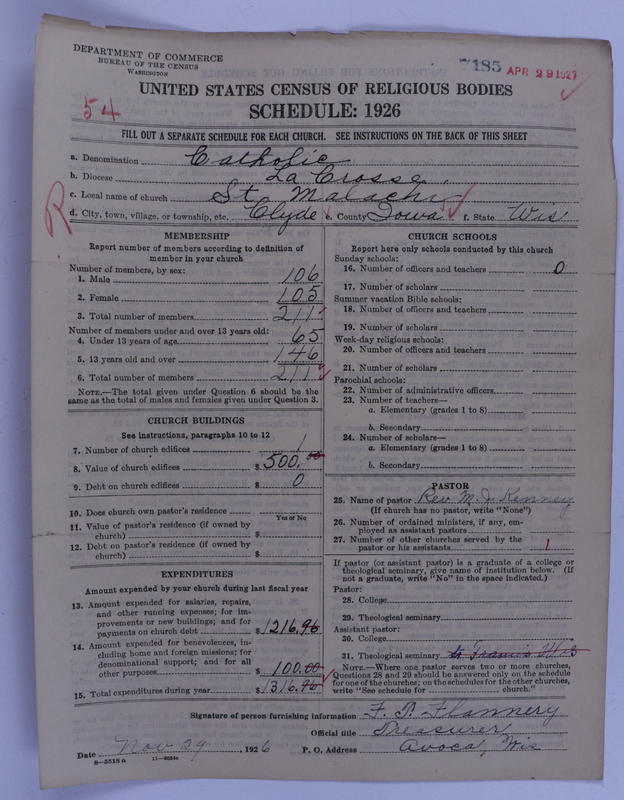 DEPARTMENT OF COMMERCE
BUREAU OF THE CENSUS
WASHINGTON
7185 APR 29 1927
54
UNITED STATES CENSUS OF RELIGIOUS BODIES
SCHEDULE: 1926
FILL OUT A SEPARATE SCHEDULE FOR EACH CHURCH. SEE INSTRUCTIONS ON THE BACK OF THIS SHEET
a. Denomination Catholic
b. Diocese La Crosse
c. Local name of church St. Malachi
d. City, town, village, or township, etc. Clyde e. County Iowa f. State Wis
R
MEMBERSHIP
Report number of members according to definition of
member in your church
Number of members, by sex:
1. Male 106
2. Female 105
3. Total number of members 211
Number of members under and over 13 years old:
4. Under 13 years of age 65
5. 13 years old and over 146
6. Total number of members 211
NOTE.—The total given under Question 6 should be the
same as the total of males and females given under Question 3.
CHURCH BUILDINGS
See instructions, paragraphs 10 to 12
7. Number of church edifices 1
8. Value of church edifices $ 500.00
9. Debt on church edifices $ 0
10. Does church own pastor's residence
Yes or No
11. Value of pastor's residence (if owned by
church) $
12. Debt on pastor's residence (if owned by
church) $
EXPENDITURES
Amount expended by your church during last fiscal year
13. Amount expended for salaries, repairs,
and other running expenses; for im-
provements or new buildings; and for
payments on church debt $ 1216.96
14. Amount expended for benevolences, in-
cluding home and foreign missions; for
denominational support; and for all
other purposes $ 100.00
15. Total expenditures during year $ 1316.96
CHURCH SCHOOLS
Report here only schools conducted by this church
Sunday schools:
16. Number of officers and teachers 0
17. Number of scholars
Summer vacation Bible schools:
18. Number of officers and teachers
19. Number of scholars
Week-day religious schools:
20. Number of officers and teachers
21. Number of scholars
Parochial schools:
22. Number of administrative officers
23. Number of teachers—
a. Elementary (grades 1 to 8)
b. Secondary
24. Number of scholars—
a. Elementary (grades 1 to 8)
b. Secondary
PASTOR
25. Name of pastor Rev. M. J. Kenney
(If church has no pastor, write "None")
26. Number of ordained ministers, if any, em-
ployed as assistant pastors
27. Number of other churches served by the
pastor or his assistants 1
If pastor (or assistant pastor) is a graduate of a college or
theological seminary, give name of institution below. (If
not a graduate, write "No" in the space indicated.)
Pastor:
28. College
29. Theological seminary
Assistant pastor:
30. College
31. Theological seminary St Francis Wis
NOTE.—Where one pastor serves two or more churches,
Questions 28 and 29 should be answered only on the schedule
for one of the churches; on the schedules for the other churches,
write "See schedule for church."
Signature of person furnishing information F. D. Flannery
Official title Treasurer
Date Nov 29, 1926 P. O. Address Avoca, Wis
8—5518 a